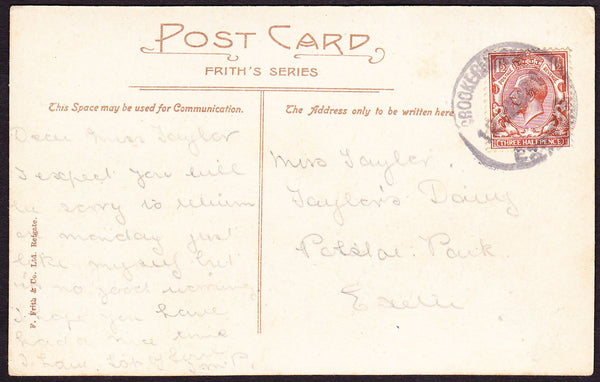 POST CARD
FRITH'S SERIES
This Space may be used for Communication.
The Address only to be written here
THREE HALF PENCE
Dear Miss Taylor
I expect you will
be sorry to return
on monday just
like myself but
no good worrying
I hope you have
had a nice time
Miss Taylor,
Taylor's Dairy
Park
Exeter
F. Frith & Co. Ltd. Reigate.